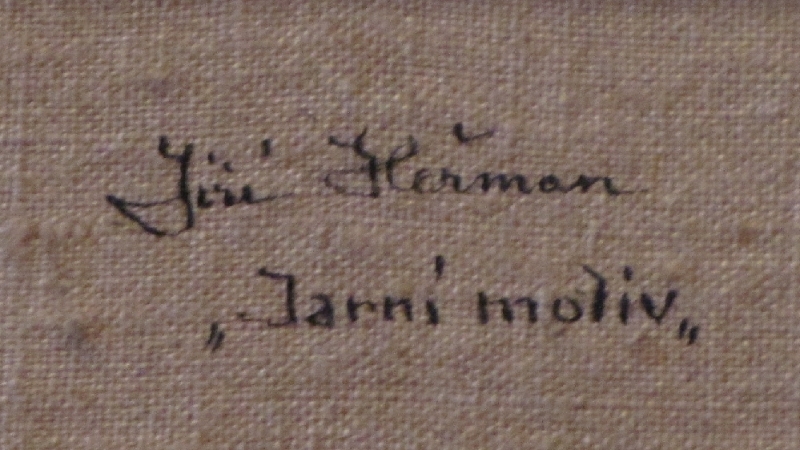 Jiří Heřman
„Jarní motiv„